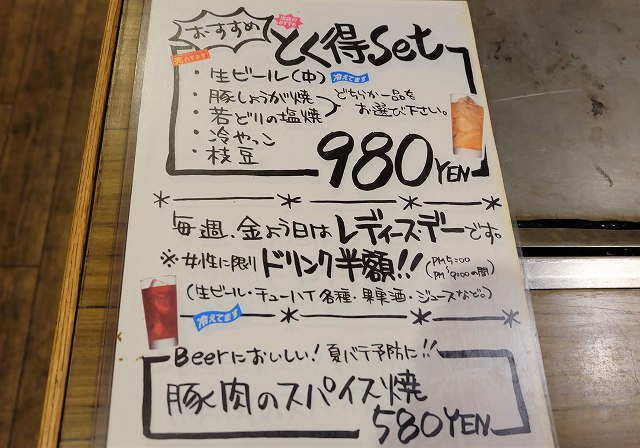 おすすめ
当店のおすすめ
とく得Set
売れてます
・生ビール(中) 冷えてます
・豚しょうが焼
・若どりの塩焼
どちらか一品を
お選び下さい。
・冷やっこ
・枝豆
980YEN
毎週.金よう日はレディースデーです。
※女性に限りドリンク半額!!(PM5:00 PM9:00の間)
(生ビール・チューハイ各種・果実酒・ジュースなど。)
冷えてます
Beerにおいしい!夏バテ予防に!!
豚肉のスパイス焼
580YEN